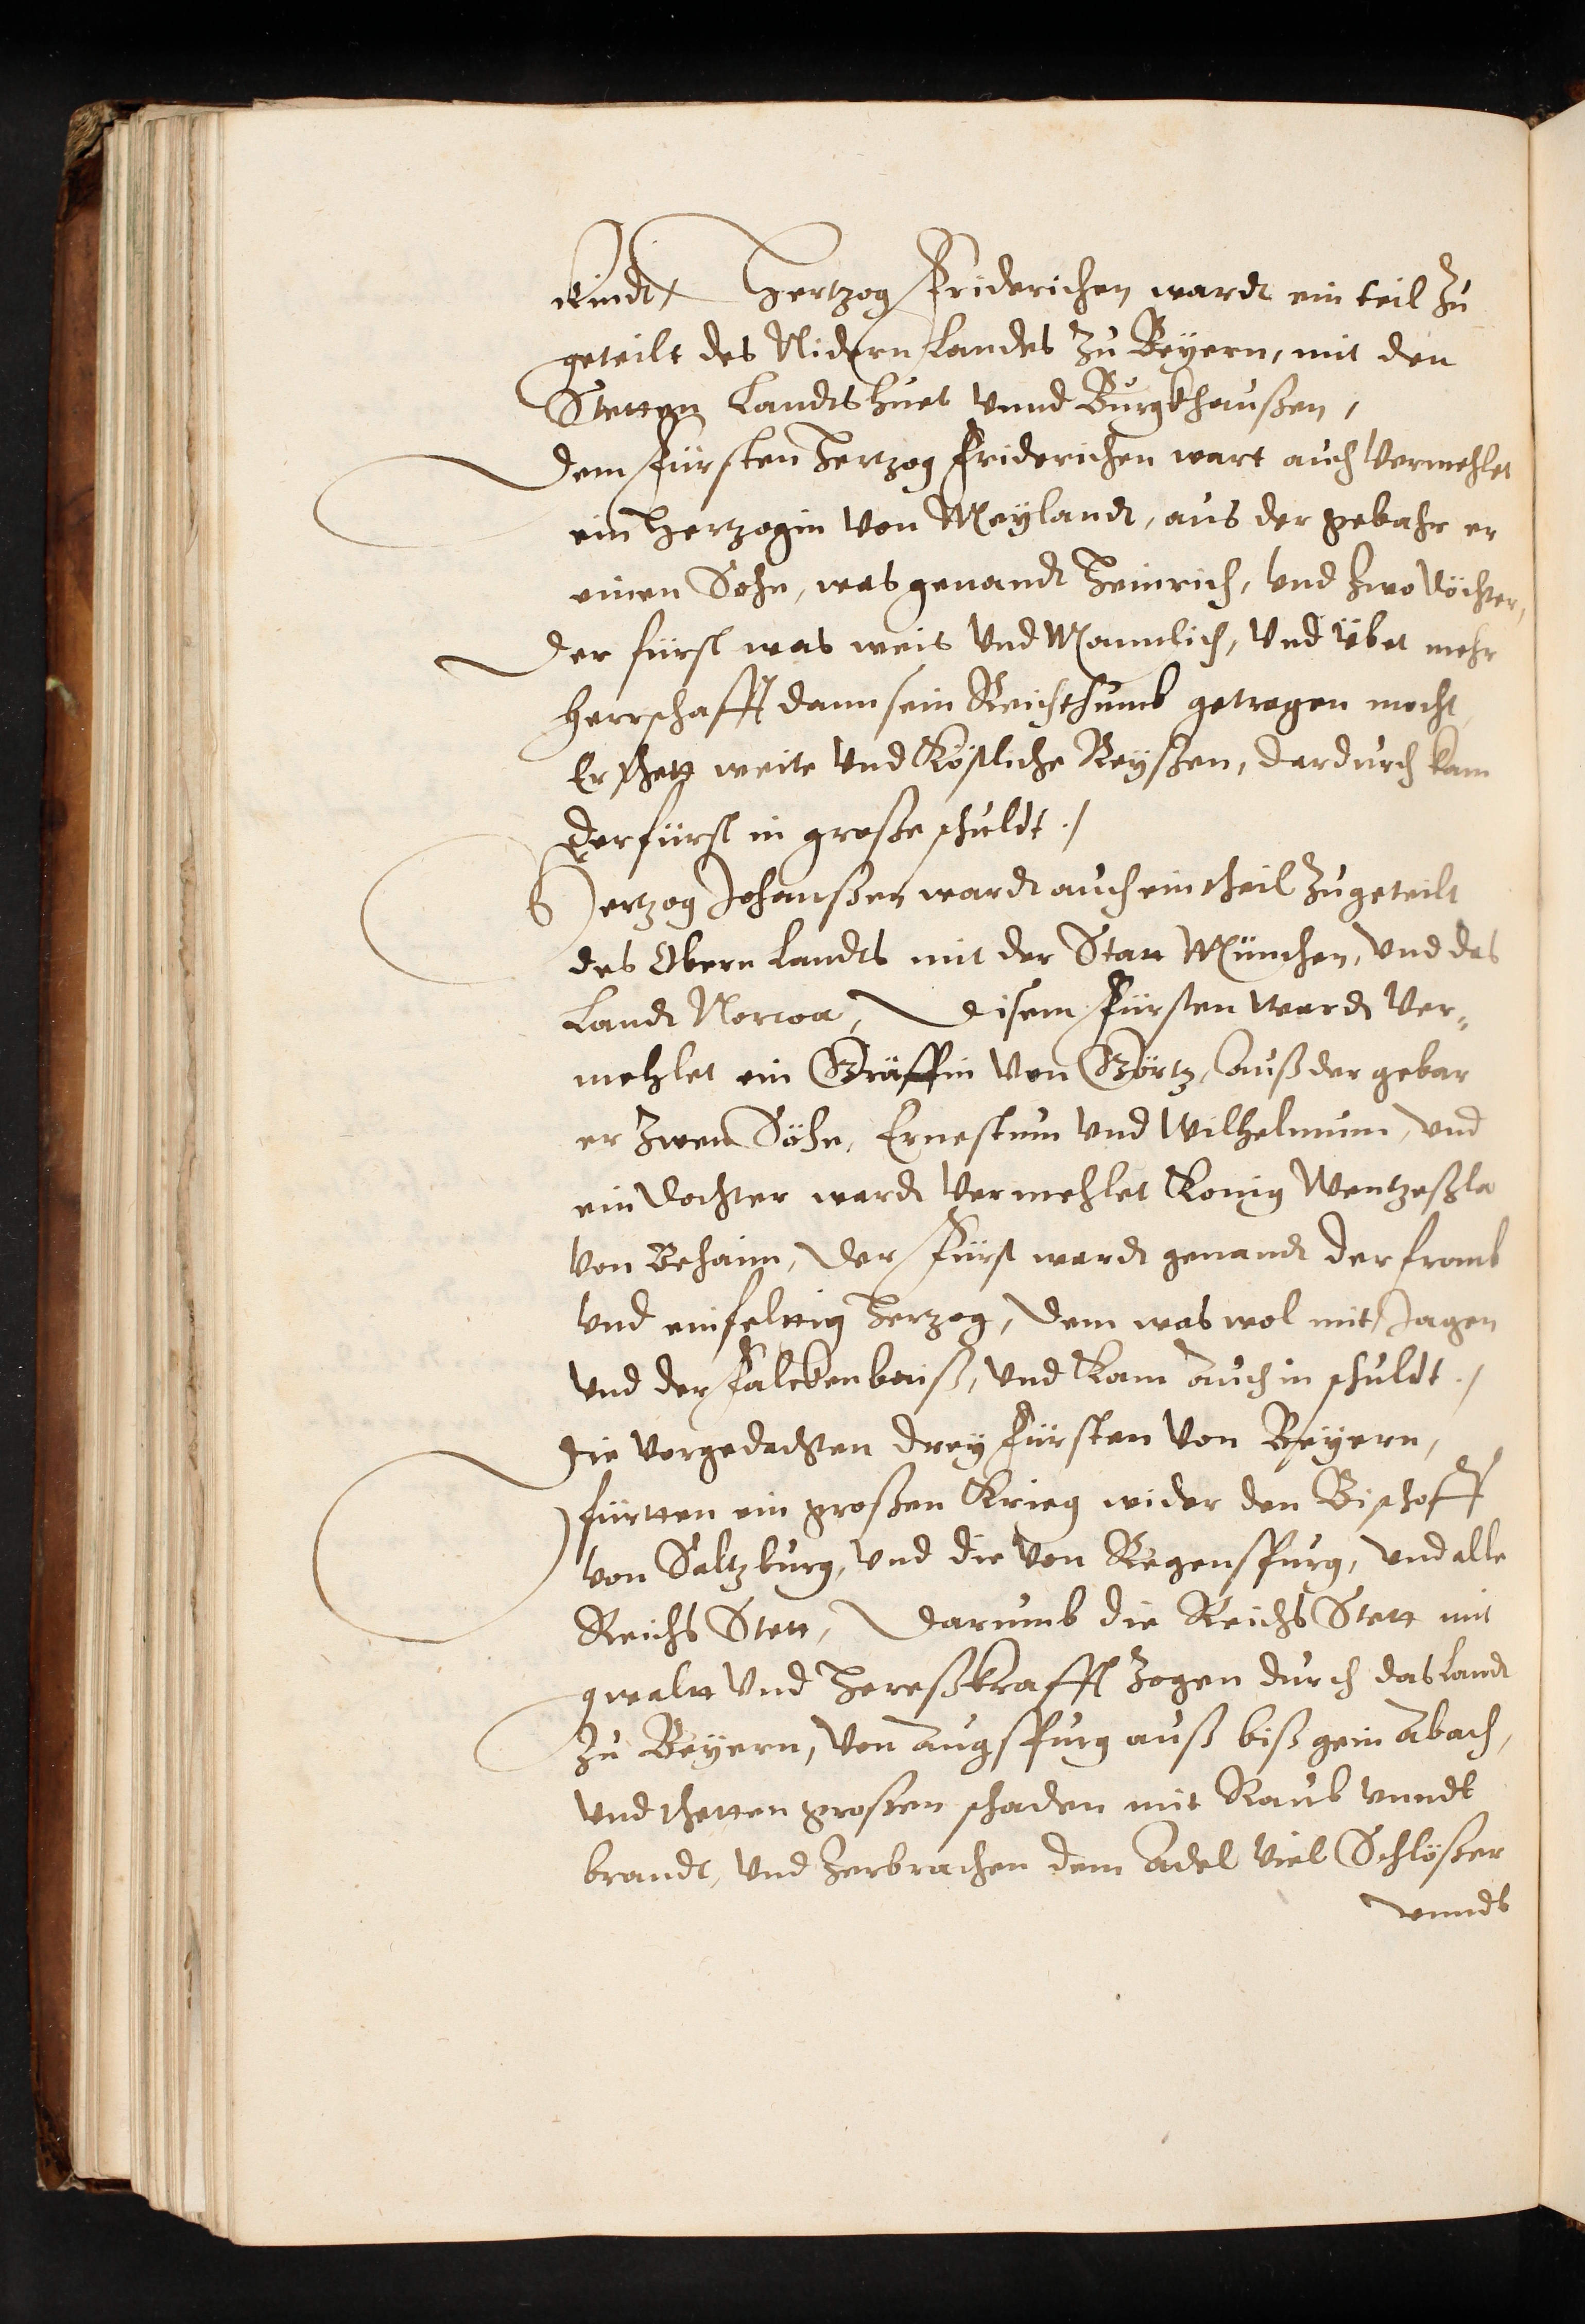 Kindt Hertzog Friderichen wardt ein teil zu
geteilt des Nidern Landes zu Beyern, mit den
Stetten Landtshuet vnnd Burgkhaußen,
Dem Fürsten Hertzog Friderichen wart auch vermehlet
ein Hertzogin von Meylandt, aus der gebahr er
einen Sohn, was genandt Heinrich, vnd zwo döchter,
Der fürst was weis vnd Mannlich, vnd übet mehr
Herrschafft dann sein Reichthumb getragen mocht,
Er thett weite vnd Köstliche Reyßen, dardurch kam
der fürst in große schuldt ./
Hertzog Johanßen wardt auch ein theil zugeteilt
des Obern Landts mit der Statt München, vnd das
Landt Norcoa, Disem Fürsten wardt ver-
mehlet ein Gräffin von Görtz, auß der gebar
er zwen Söhn, Ernestum vnd Wilhelmum, vnd
ein dochter wardt vermehlet Konig Wentzeßla
von Behaim, Der Fürst wardt genandt der fromb
vnd einfeltig Herzog, dem was wol mit Jagen
vnd der Falckenbaiß, vnd Kam auch in schuldt ./
Die vorgedachten drey Fürsten von Beyern,
fürtten ein großen Krieg wider den Bischoff
von Saltzburg, vnd die von Regenspurg, vnd alle
Reichs Stett, Darumb die Reichs Stett mit
gwaltt vnd Hereßkrafft zogen durch das Landt
zu Beyern, von Augspurg auß biß gein Abach,
vnd thetten großen schaden mit Raub vnndt
brandt, vnd zerbrachen dem Adel viel Schlößer
vnndt